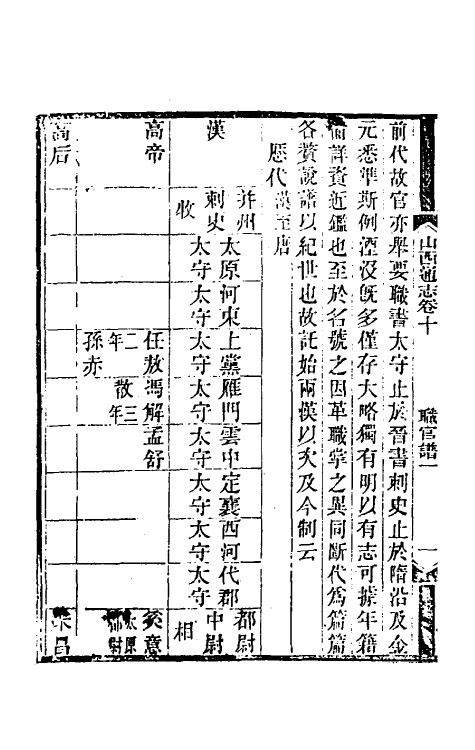 山西通志卷十
職官譜一
一
前代故官亦舉要職書太守止於晉書刺史止於隋沿及金
元悉準斯例湮沒旣多僅存大略獨有明以有志可據年籍
備詳資近鑑也至於名號之因革職掌之異同斷代爲篇篇
各贅說譜以紀世也故託始兩漢以次及今制云
歷代漢至唐
漢
并州
刺史
牧
太原太守
河東太守
上黨太守
雁門太守
雲中太守
定襄太守
西河太守
代郡太守
都尉
中尉
相
高帝
任敖
二年
孫赤
馮解散
三年
孟舒
矦意
太原
都尉
高后